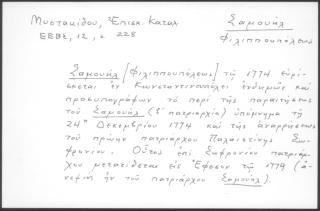 Μυστακίδου, Ἐπισκ. Καταλ
Σαμουὴλ
ΕΕΒΣ, 12, σ. 228
Φιλιππουπόλεως
Σαμουὴλ [Φιλιππουπόλεως] τῷ 1774 εὑρί-
σκεται ἐν Κωνσταντινουπόλει ἐνδημῶν καὶ
προσυπογράφων τὸ περὶ τῆς παραιτήσεως
τοῦ Σαμουὴλ πατριαρχία) ὑπόμνημα τῇ
24ῃ Δεκεμβρίου 1774 καὶ τῆς ἀναρρήσεως
τοῦ πρώην πατριάρχου Παλαιστίνης Σω-
φρονίου. Οὗτος ἐπὶ Σωφρονίου πατριάρ-
χου μετατίθεται εἰς Ἔφεσον τῷ 1779 (ἀ-
νεψιὸς ἦν τοῦ πατριάρχου Σαμουήλ).